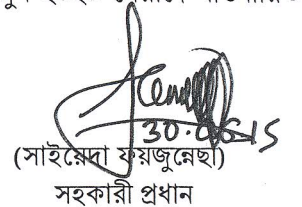 30.06.15
(সাইয়েদা ফয়জুন্নেছা)
সহকারী প্রধান